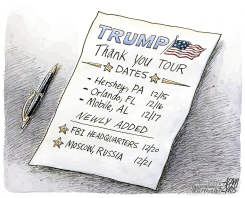 TRUMP
Thank you TOUR
DATES
• Hershey, PA 12/15
• Orlando, FL 12/16
• Mobile, AL 12/17
NEWLY ADDED
FBI HEADQUARTERS 12/20
MOSCOW, RUSSIA 12/21